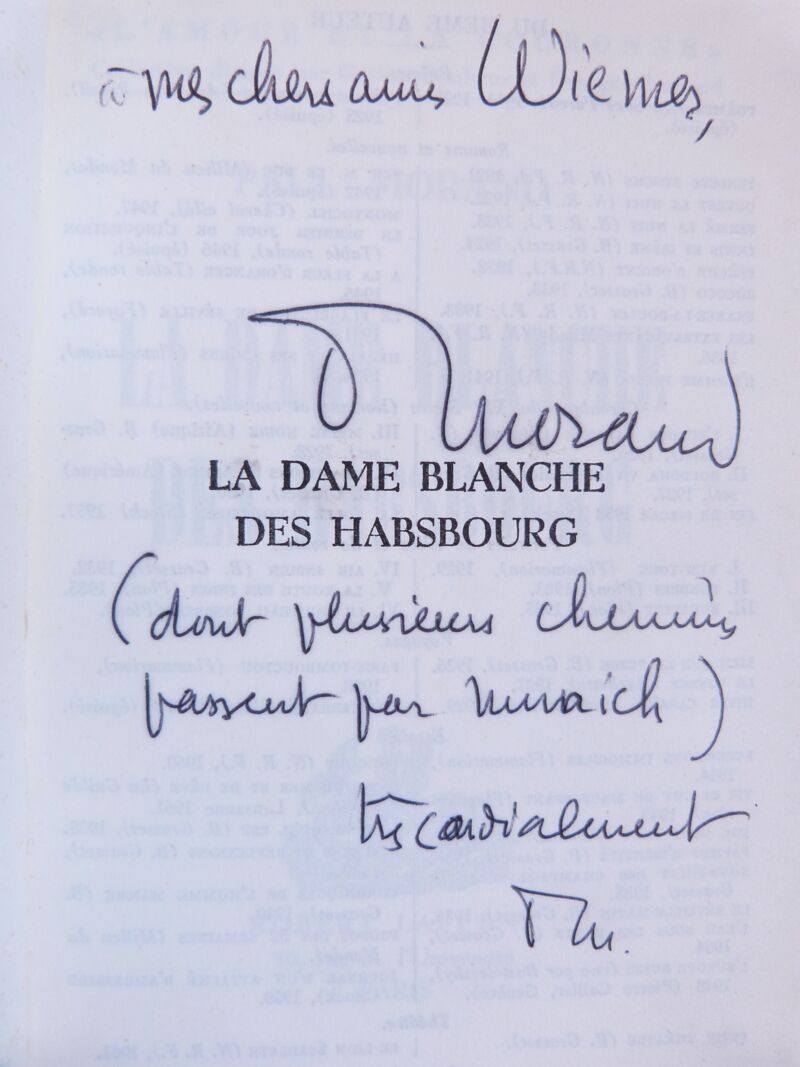 à mes chers amis Wiemes,
P. Morand
LA DAME BLANCHE
DES HABSBOURG
(dont plusieurs chemins
passent par Munich)
très cordialement
P.M.